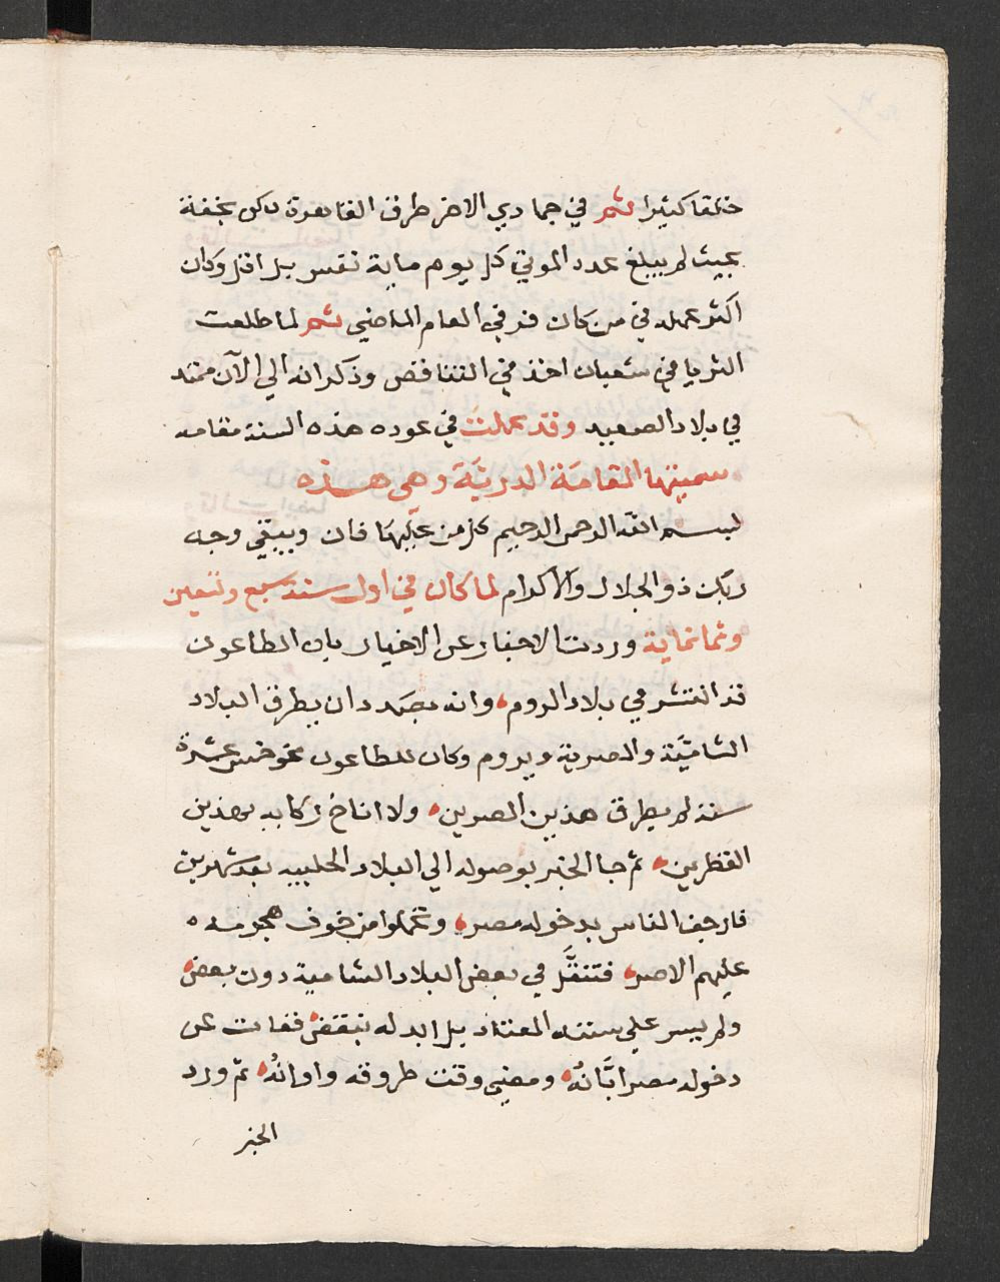 خلقا كثيرا ثم في جمادي الاخر طرق القاهرة لكن بخفة
بحيث لم يبلغ عدد الموتي كل يوم ماية نفس بل اقل وكان
اكثر عمله في من كان فر في العام الماضي ثم لما طلعت
الثريا في شعبان اخذ في التناقص وذكر انه الي الآن ممتد
في بلاد الصعيد وقد عملت في عوده هذه السنة مقامه
سميتها المقامَة الدريَّة وهي هذه
بسم الله الرحمن الرحيم كل من عليهَا فان ويبقي وجه
ربك ذو الجلال والاكرام لما كان في اول سنة سبع وتسعين
وثمانماية وردت الاخبار عن الاخيار بان الطاعون
قد انتشر في بلاد الروم، وانه بصَدد ان يطرق البلاد
الشاميَّة والمصرية ويروم وكان للطاعون نحو خمس عشرة
سنة لم يطرق هذين المصرين، ولا اناخ ركابه بهذين
القطرين، ثم جا الخبر بوصوله الي البلاد الحلبيه بعد شهرين
فارجف الناس بدخوله مصر، وتحملوا من خوف هجومه ه
عليهم الاصر، فتنقَّل في بعض البلاد الشامية دون بعض،
ولم يسر علي سنته المعتاد بل ابدله بنقض، ففات عن
دخوله مصر ابَّانهُ، ومضي وقت طروقه واوانهُ، ثم ورد
الخبر